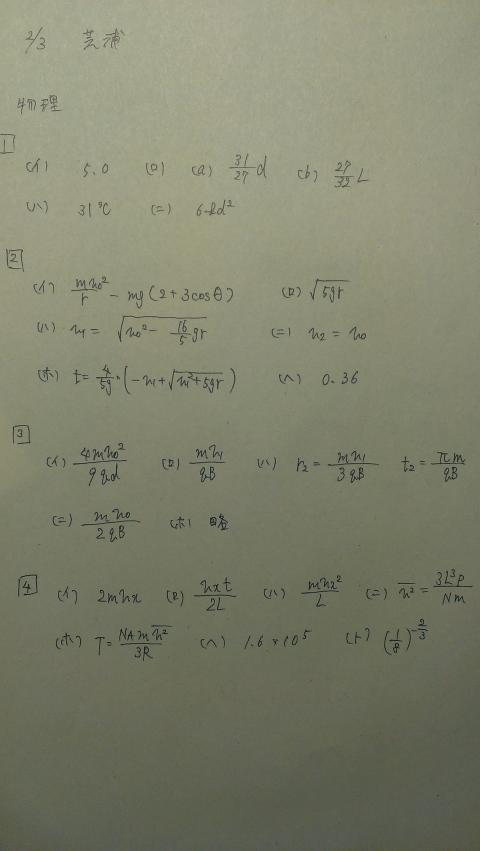 2/3 芝浦
物理
1
(イ) 5.0 (ロ) (a) 31/27 d (b) 27/32 L
(ハ) 31℃ (ニ) 6kd²
2
(イ) mv₀²/r - mg(2+3cosθ) (ロ) √5gr
(ハ) v₁ = √(v₀² - 16/5 gr) (ニ) v₂ = v₀
(ホ) t = 4/5g・(-v₁+√(v₁²+5gr)) (ヘ) 0.36
3
(イ) 4mv₀²/9qd (ロ) mv₁/qB (ハ) r₂ = mv₁/3qB t₂ = πm/qB
(ニ) mv₀/2qB (ホ)
4
(イ) 2mvx (ロ) vxt/2L (ハ) mvx²/L (ニ) v̅²̅ = 3L³P/Nm
(ホ) T = NAmv̅²̅/3R (ヘ) 1.6×10⁵ (ト) (1/8)^(-2/3)